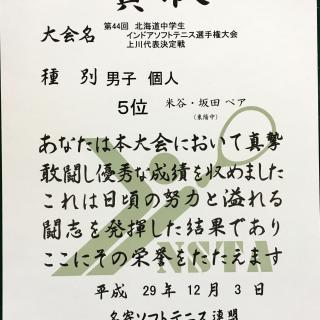 賞状
大会名
第44回 北海道中学生
インドアソフトテニス選手権大会
上川代表決定戦
種別 男子 個人
5位 米谷・坂田 ペア
(東陽中)
あなたは本大会において真摯
敢闘し優秀な成績を収めました
これは日頃の努力と溢れる
闘志を発揮した結果であり
ここにその栄誉をたたえます
NSTA
平成 29年 12月 3日
名寄ソフトテニス連盟